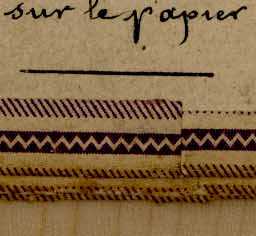 sur le papier